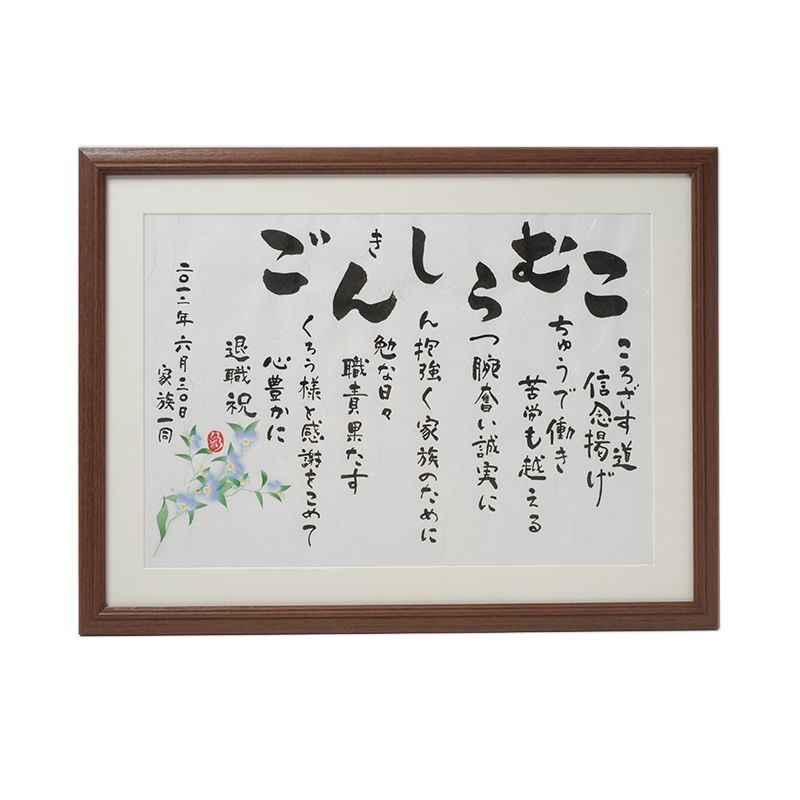 こころざす道
信念揚げ
むちゅうで働き
苦労も越える
らつ腕奮い誠実に
しん抱強く家族のために
きん勉な日々
職責果たす
ごくろう様と感謝をこめて
心豊かに
退職祝
二〇一二年 六月三〇日
家族一同